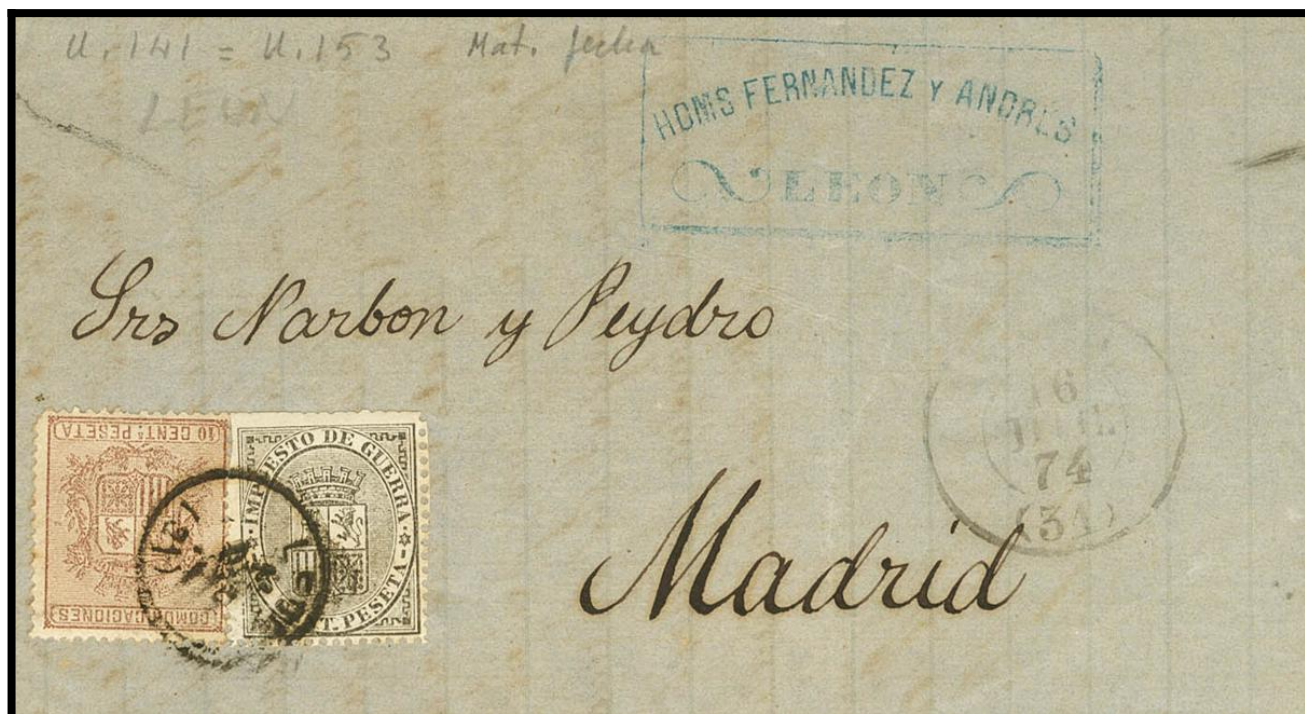 U. 141 = U. 153 Mat. fecha
LEON
HOMS FERNANDEZ Y ANDRES
LEON
Srs Narbon y Peydro
16
74
(31)
10 CENT.s PESETA
COMUNICACIONES
IMPUESTO DE GUERRA
T. PESETA
Madrid